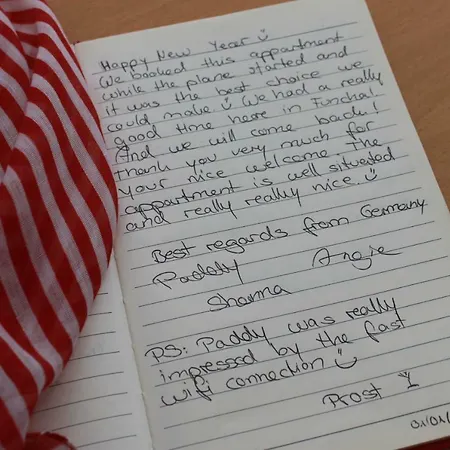 Happy New Year ☺
We booked this appartment
while the plane started and
it was the best choice we
could make ☺ We had a really
good time here in Funchal.
And we will come back!
Thank you very much for
your nice welcome. The
appartment is well situated
and really really nice. ☺
Best regards from Germany
Paddy Angie
Sharma
PS: Paddy was really
impressed by the fast
wifi connection ☺
Prost
01/01/